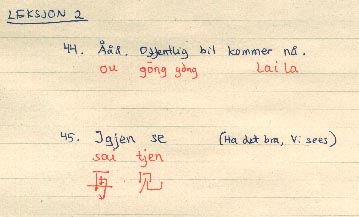 LEKSJON 2
44. Ååå. Offentlig bil kommer nå.
ou gōng gòng lai la
45. Igjen se (Ha det bra, Vi sees)
sai tjen
再 见